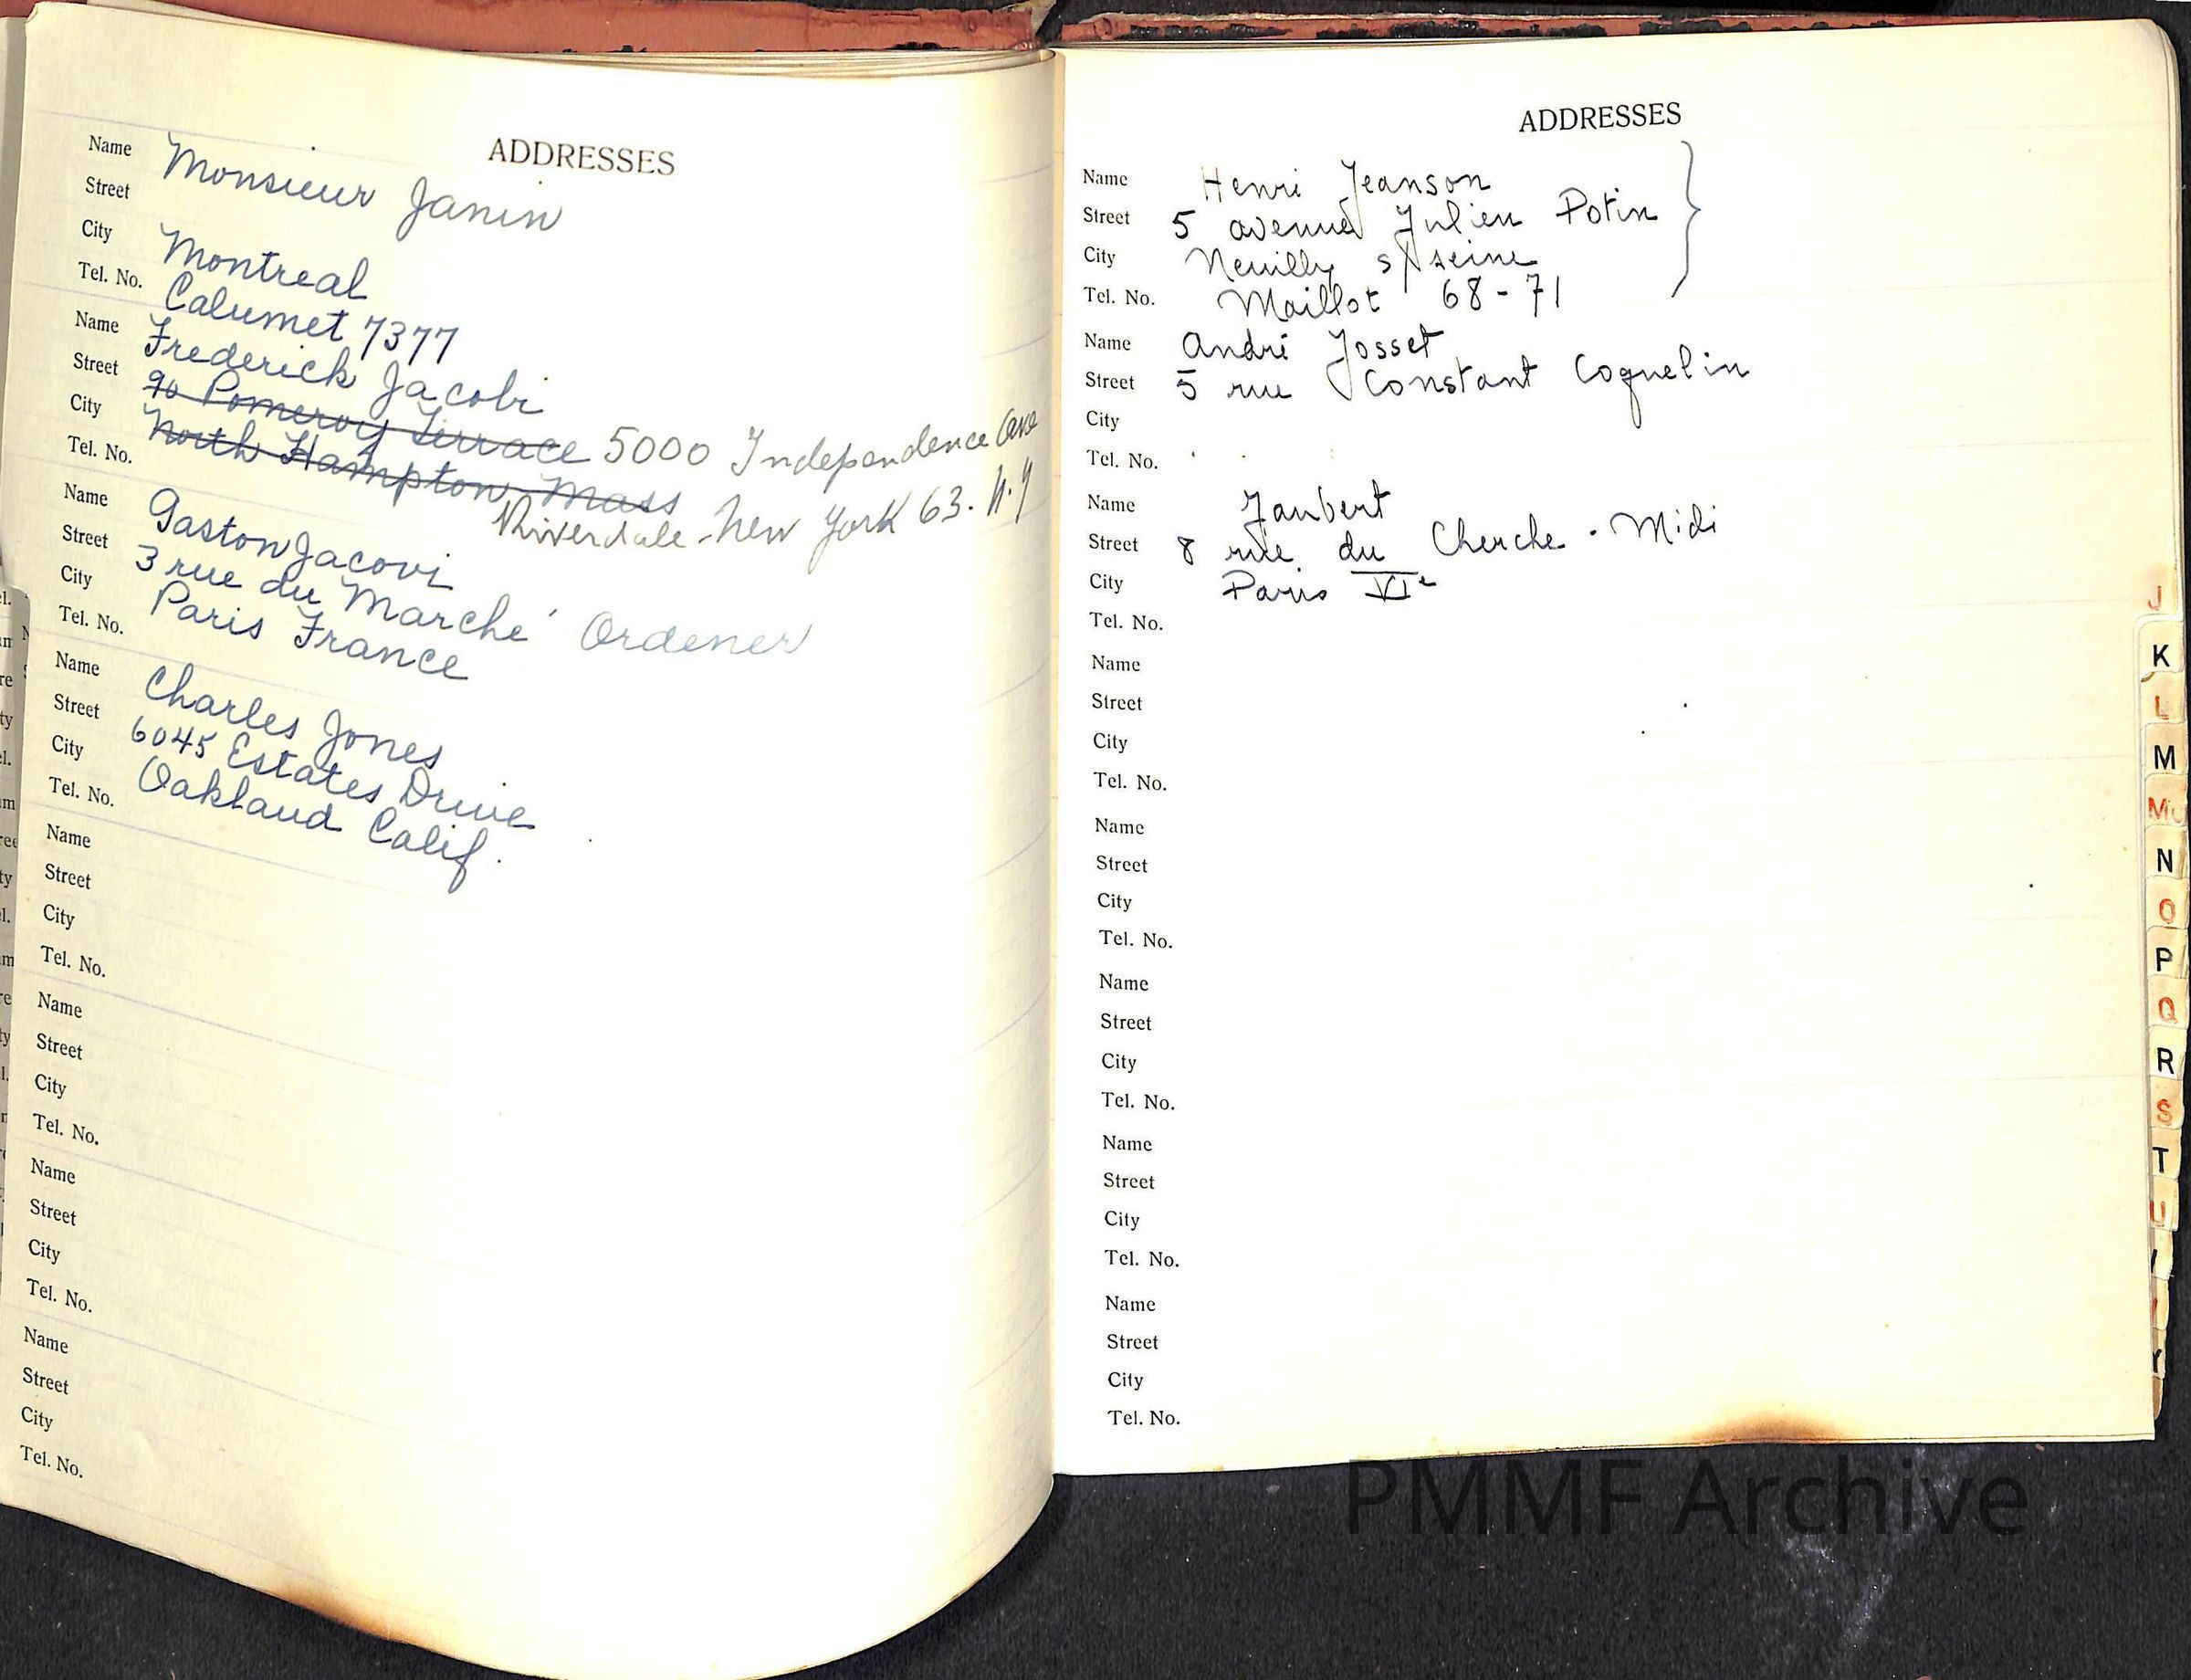 ADDRESSES
Name Monsieur Janin
Street
City Montreal
Tel. No. Calumet 7377
Name Frederick Jacobi
Street 90 Pomeroy Terrace 5000 Independence Ave
City North Hampton, Mass
Tel. No. Riverdale - New York 63. N.Y
Name Gaston Jacovi
Street 3 rue du Marché Ordener
City Paris France
Tel. No.
Name Charles Jones
Street 6045 Estates Drive
City Oakland Calif.
Tel. No.
Name
Street
City
Tel. No.
Name
Street
City
Tel. No.
Name
Street
City
Tel. No.
Name
Street
City
Tel. No.
ADDRESSES
Name Henri Jeanson
Street 5 avenue Julien Potin
City Neuilly s/ seine
Tel. No. Maillot 68-71
Name André Josset
Street 5 rue Constant Coquelin
City
Tel. No.
Name Jaubert
Street 8 rue du Cherche-Midi
City Paris VIe
Tel. No.
Name
Street
City
Tel. No.
Name
Street
City
Tel. No.
Name
Street
City
Tel. No.
Name
Street
City
Tel. No.
Name
Street
City
Tel. No.
J
K
L
M
Mc
N
O
P
Q
R
S
T
U
Y
PMMF Archive